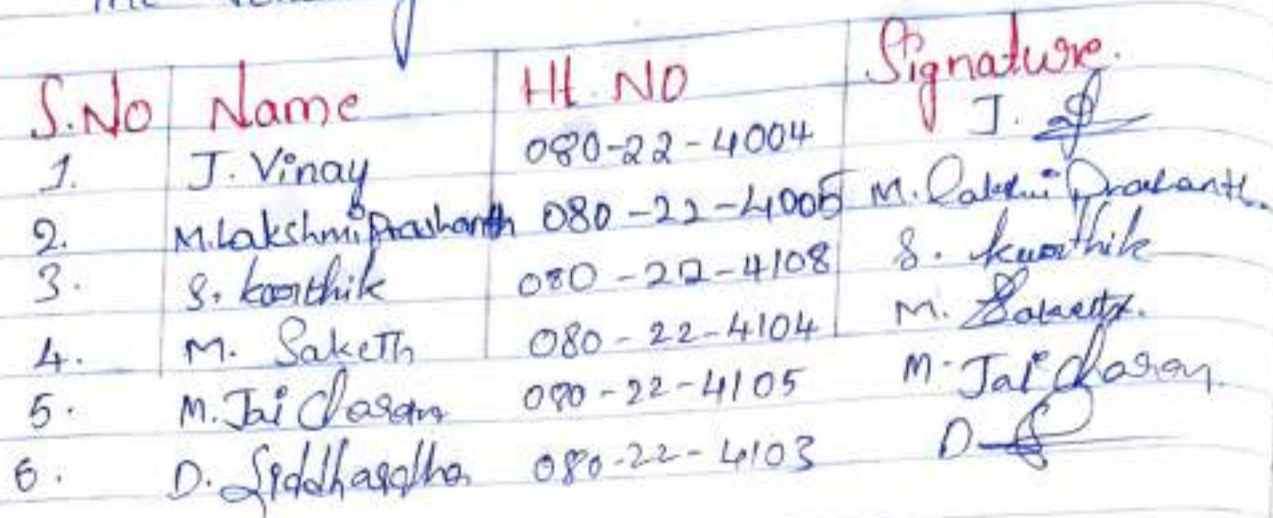 the
S.No Name Ht. NO Signature.
1. J. Vinay 080-22-4004 J.
2. M. Lakshmi Prashanth 080-22-4005 M. Lakshmi Prashanth.
3. S. karthik 080-22-4108 S. karthik
4. M. Saketh 080-22-4104 M. Saketh.
5. M. Jai Charan 080-22-4105 M. Jai Charan.
6. D. Siddhardha 080-22-4103 D